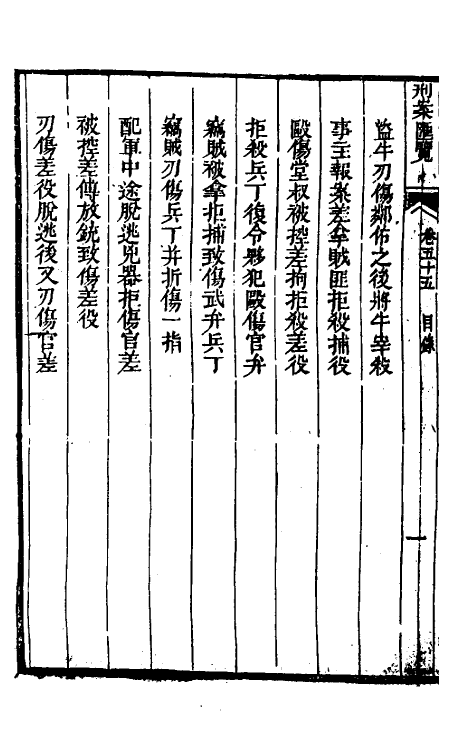 刑案匯覽
卷五十五
目錄
一
盜牛刃傷鄰佑之後將牛宰殺
事主報案差拿賊匪拒殺捕役
毆傷堂叔被控差拘拒殺差役
拒殺兵丁復令夥犯毆傷官弁
竊賊被拿拒捕致傷武弁兵丁
竊賊刃傷兵丁并折傷一指
配軍中途脫逃兇器拒傷官差
被控差傳放銃致傷差役
刃傷差役脫逃後又刃傷官差